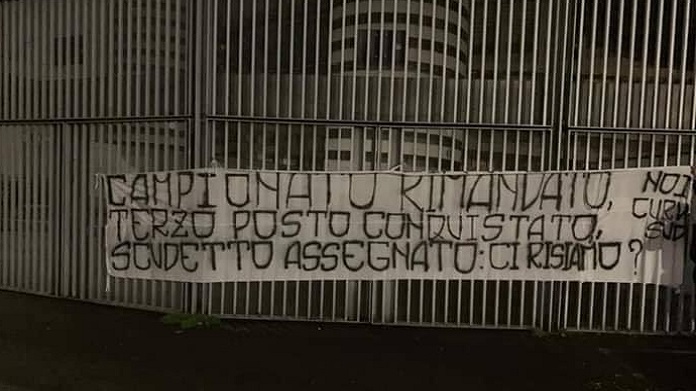 CAMPIONATO RIMANDATO,
TERZO POSTO CONQUISTATO,
SCUDETTO ASSEGNATO: CI RISIAMO?
NOI
CURVA
SUD